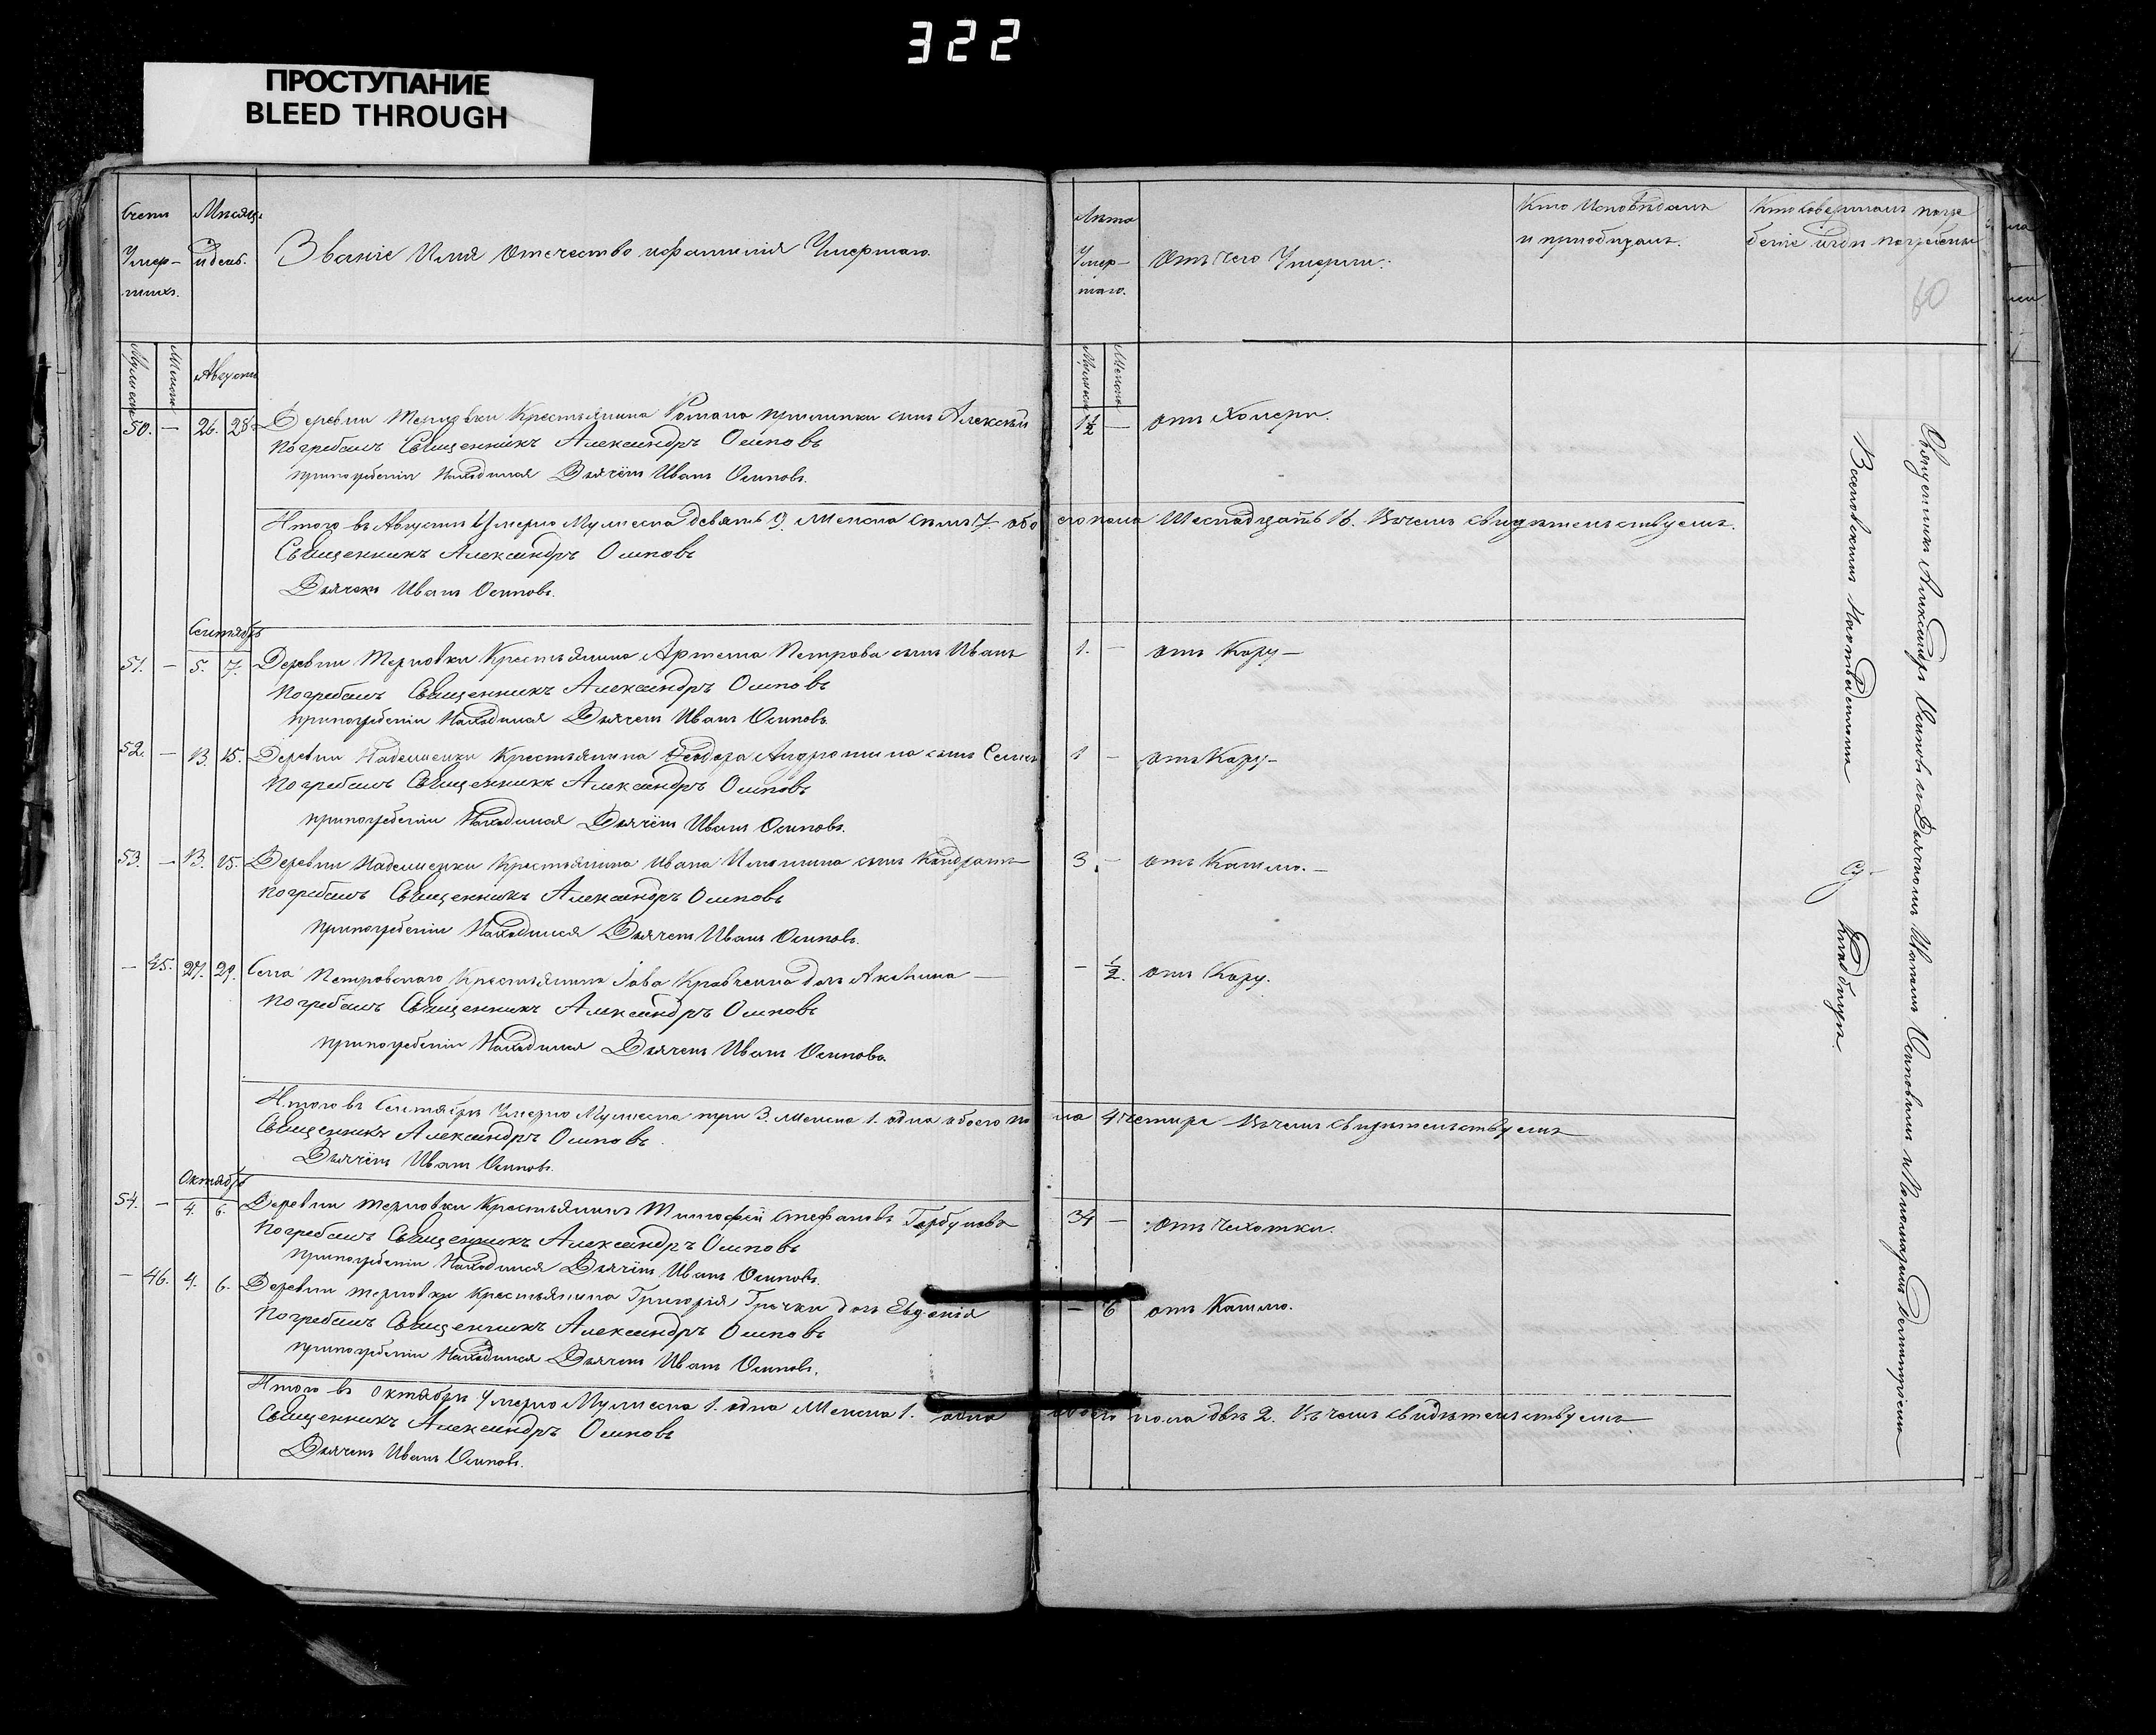 322
ПРОСТУПАНИЕ
BLEED THROUGH
Счетъ Умер-шихъ.
Мѣсяцъ и день.
Званіе Имя Отечество и фамилія Умершаго.
Лѣта Умер-шаго.
Отъ чего Умерли:
Кто Исповѣдалъ и приобщалъ.
Кто Совершалъ погре бение и гдѣ погребены
60
Августъ
50. — 26. 28. Деревни Терновки Крестьянина Романа сынъ Алексѣй 1 1/2 — отъ Холеры.
Погребалъ Священникъ Александръ Осиповъ
при погребеніи Находился Дьячекъ Иванъ Осиповъ.
Итого въ Августѣ Умерло Мужеска девять 9. Женска семь 7. обо его пола Шеснадцать 16. Въ чемъ свидѣтельствуемъ.
Священникъ Александръ Осиповъ
Дьячекъ Иванъ Осиповъ.
Сентябрь
51. — 5. 7. Деревни Терновки Крестьянина Артема Петрова сынъ Иванъ 1. — отъ Кору —
Погребалъ Священникъ Александръ Осиповъ
при погребеніи Находился Дьячекъ Иванъ Осиповъ.
52. — 13. 15. Деревни Крестьянина Феодора сынъ 1 — отъ Кору —
Погребалъ Священникъ Александръ Осиповъ
при погребеніи Находился Дьячекъ Иванъ Осиповъ.
53. — 13. 15. Деревни Крестьянина Ивана сынъ Кондратъ 3. — отъ Кашлю. —
Погребалъ Священникъ Александръ Осиповъ
при погребеніи Находился Дьячекъ Иванъ Осиповъ.
— 45. 27. 29. Села Петровского Крестьянина Іова Кравченка дочь Акелина — — 1/2. отъ Кору.
Погребалъ Священникъ Александръ Осиповъ
при погребеніи Находился Дьячекъ Иванъ Осиповъ.
Итого въ Сентябрѣ Умерло Мужеска три 3. Женска 1. одна обоего по ла 4 четыре Въ чемъ свидѣтельствуемъ
Священникъ Александръ Осиповъ.
Дьячекъ Иванъ Осиповъ.
Октябрь
54. — 4. 6. Деревни Терновки Крестьянинъ Тимофей Стефановъ Горбуновъ 34 — отъ Чахотки.
Погребалъ Священникъ Александръ Осиповъ
при погребеніи Находился Дьячекъ Иванъ Осиповъ.
— 46. 4. 6. Деревни Терновки Крестьянина Григорія Грачки дочь Евдокія — 6 отъ Кашлю.
Погребалъ Священникъ Александръ Осиповъ
при погребеніи Находился Дьячекъ Иванъ Осиповъ.
Итого въ Октябрѣ Умерло Мужеска 1. одна Женска 1. одна обоего пола двѣ 2. Въ чемъ свидѣтельствуемъ
Священникъ Александръ Осиповъ
Дьячекъ Иванъ Осиповъ.
Священникъ Александръ Осиповъ и Дьячкомъ Иваномъ Осиповымъ и Пономаремъ